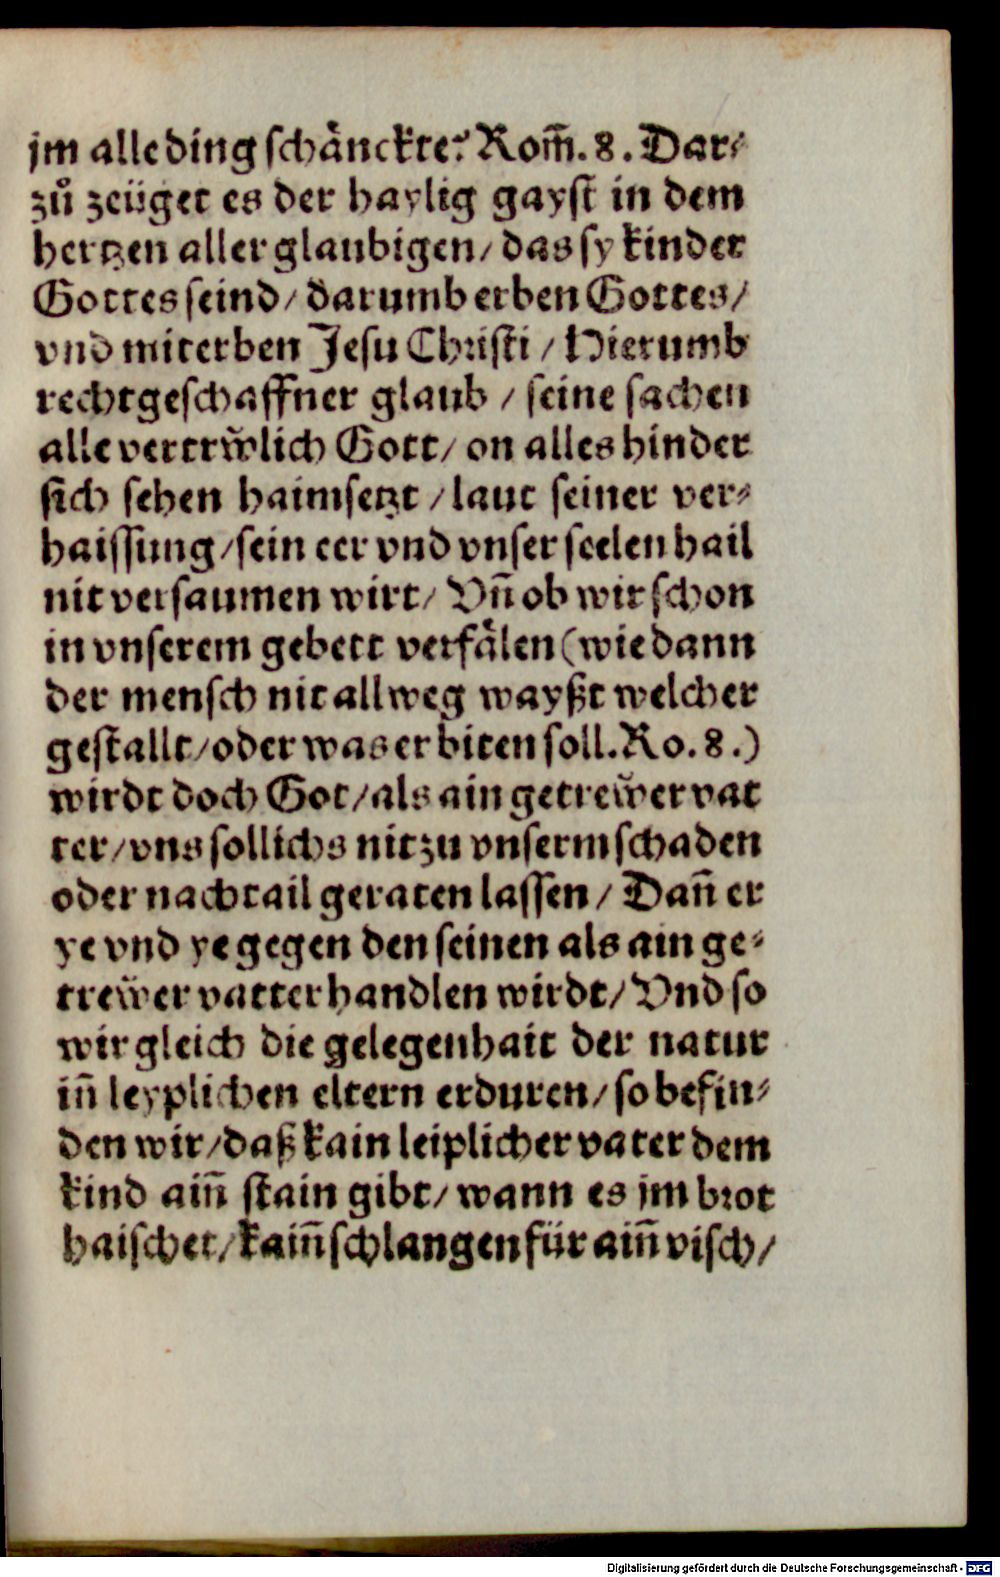 jm alle ding schaͤnckte? Rom̃. 8. Dar⸗
zuͦ zeüget es der haylig gayst in dem
hertzen aller glaubigen/ das sy kinder
Gottes seind/ darumb erben Gottes/
vnd miterben Jesu Christi / Hierumb
rechtgeschaffner glaub / seine sachen
alle vertrw̆lich Gott/ on alles hinder
sich sehen haimsetzt / laut seiner ver⸗
haissung/ sein eer vnd vnser seelen hail
nit versaumen wirt/ Vñ ob wir schon
in vnserem gebett verfaͤlen (wie dann
der mensch nit allweg wayßt welcher
gestallt/ oder was er biten soll. Ro. 8.)
wirdt doch Got/ als ain getrew̆er vat
ter/ vns sollichs nit zu vnserm schaden
oder nachtail geraten lassen/ Dañ er
ye vnd ye gegen den seinen als ain ge⸗
trew̆er vatter handlen wirdt/ Vnd so
wir gleich die gelegenhait der natur
iñ leyplichen eltern erduren/ so befin⸗
den wir/ daß kain leiplicher vater dem
kind aiñ stain gibt/ wann es jm brot
haischet/ kaiñ schlangen für aiñ visch/
Digitalisierung gefördert durch die Deutsche Forschungsgemeinschaft - DFG